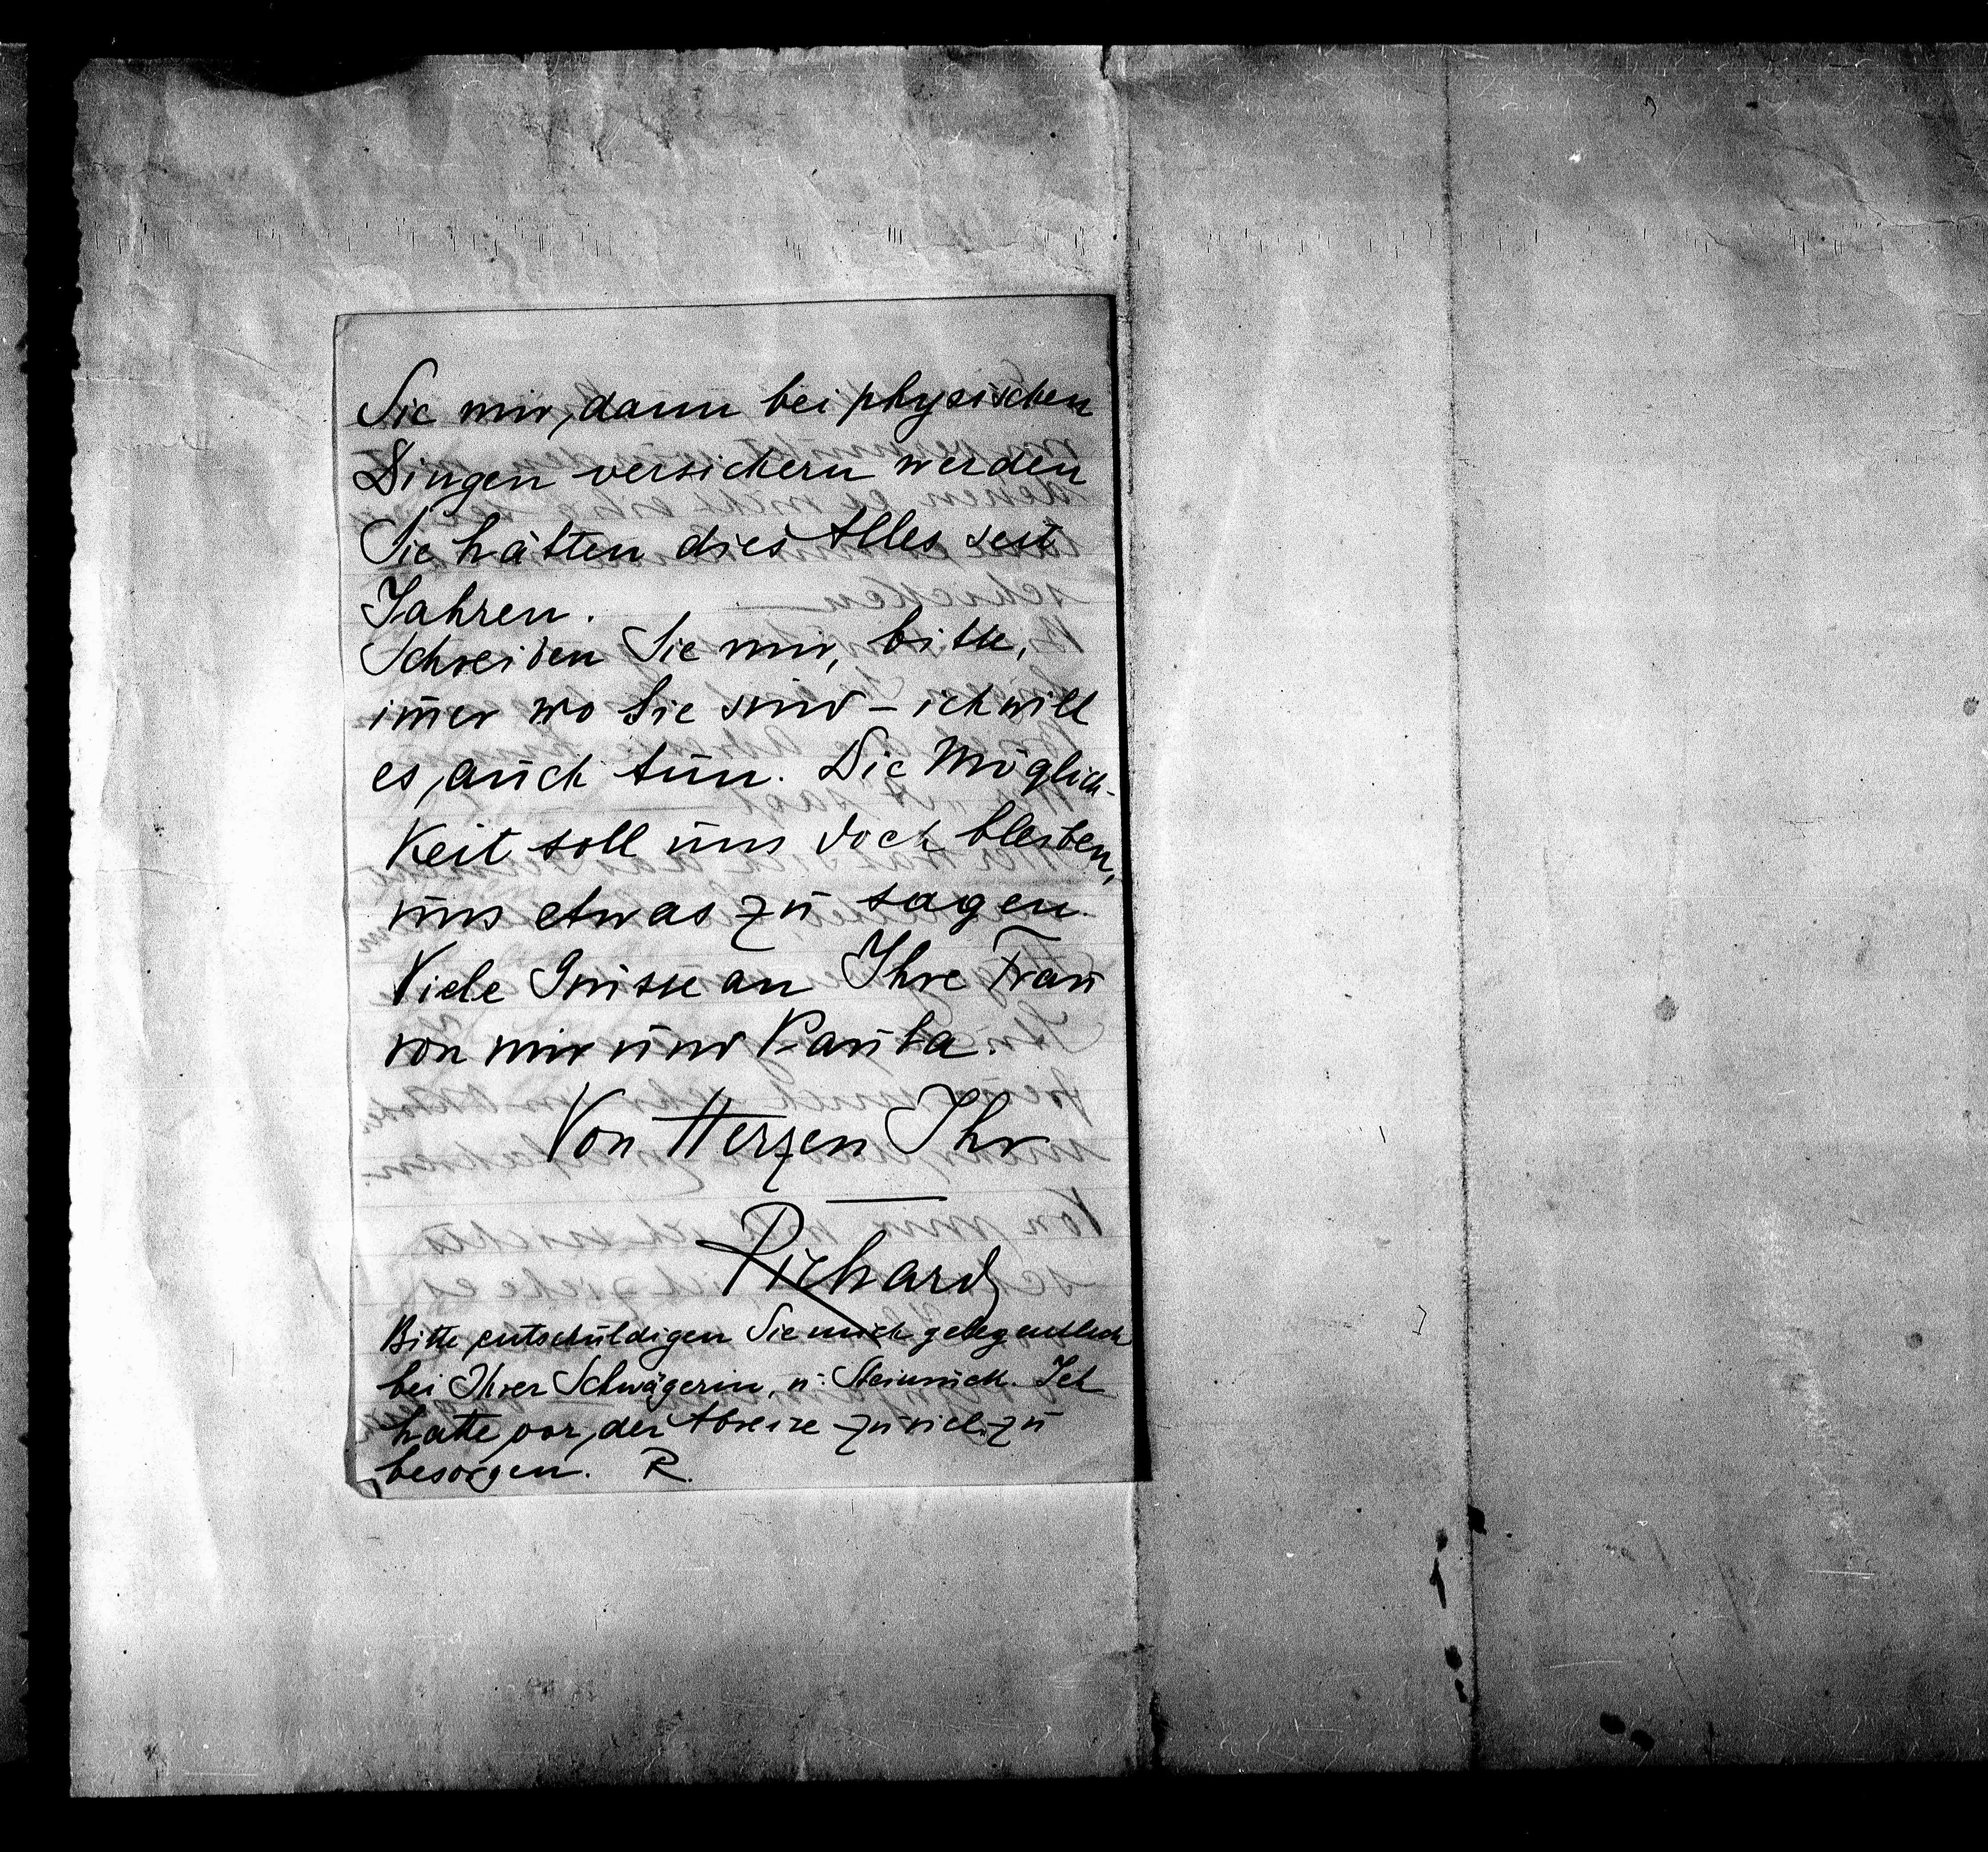 Sie mir, dann bei physischen
Dingen versichern werden
Sie hätten dies Alles seit
Jahren.
Schreiben Sie mir, bitte,
im̄er wo Sie sind – ich will
es auch tun. Die Möglich-
keit soll uns doch bleiben,
uns etwas zu sagen.
Viele Grüsse an Ihre Frau
von mir und Paula.
Von Herzen Ihr
Richard
Bitte entschuldigen Sie mich gelegentlich
bei Ihrer Schwägerin, u. Steinrück. Ich
hatte vor der Abreise zu viel zu
besorgen. R.